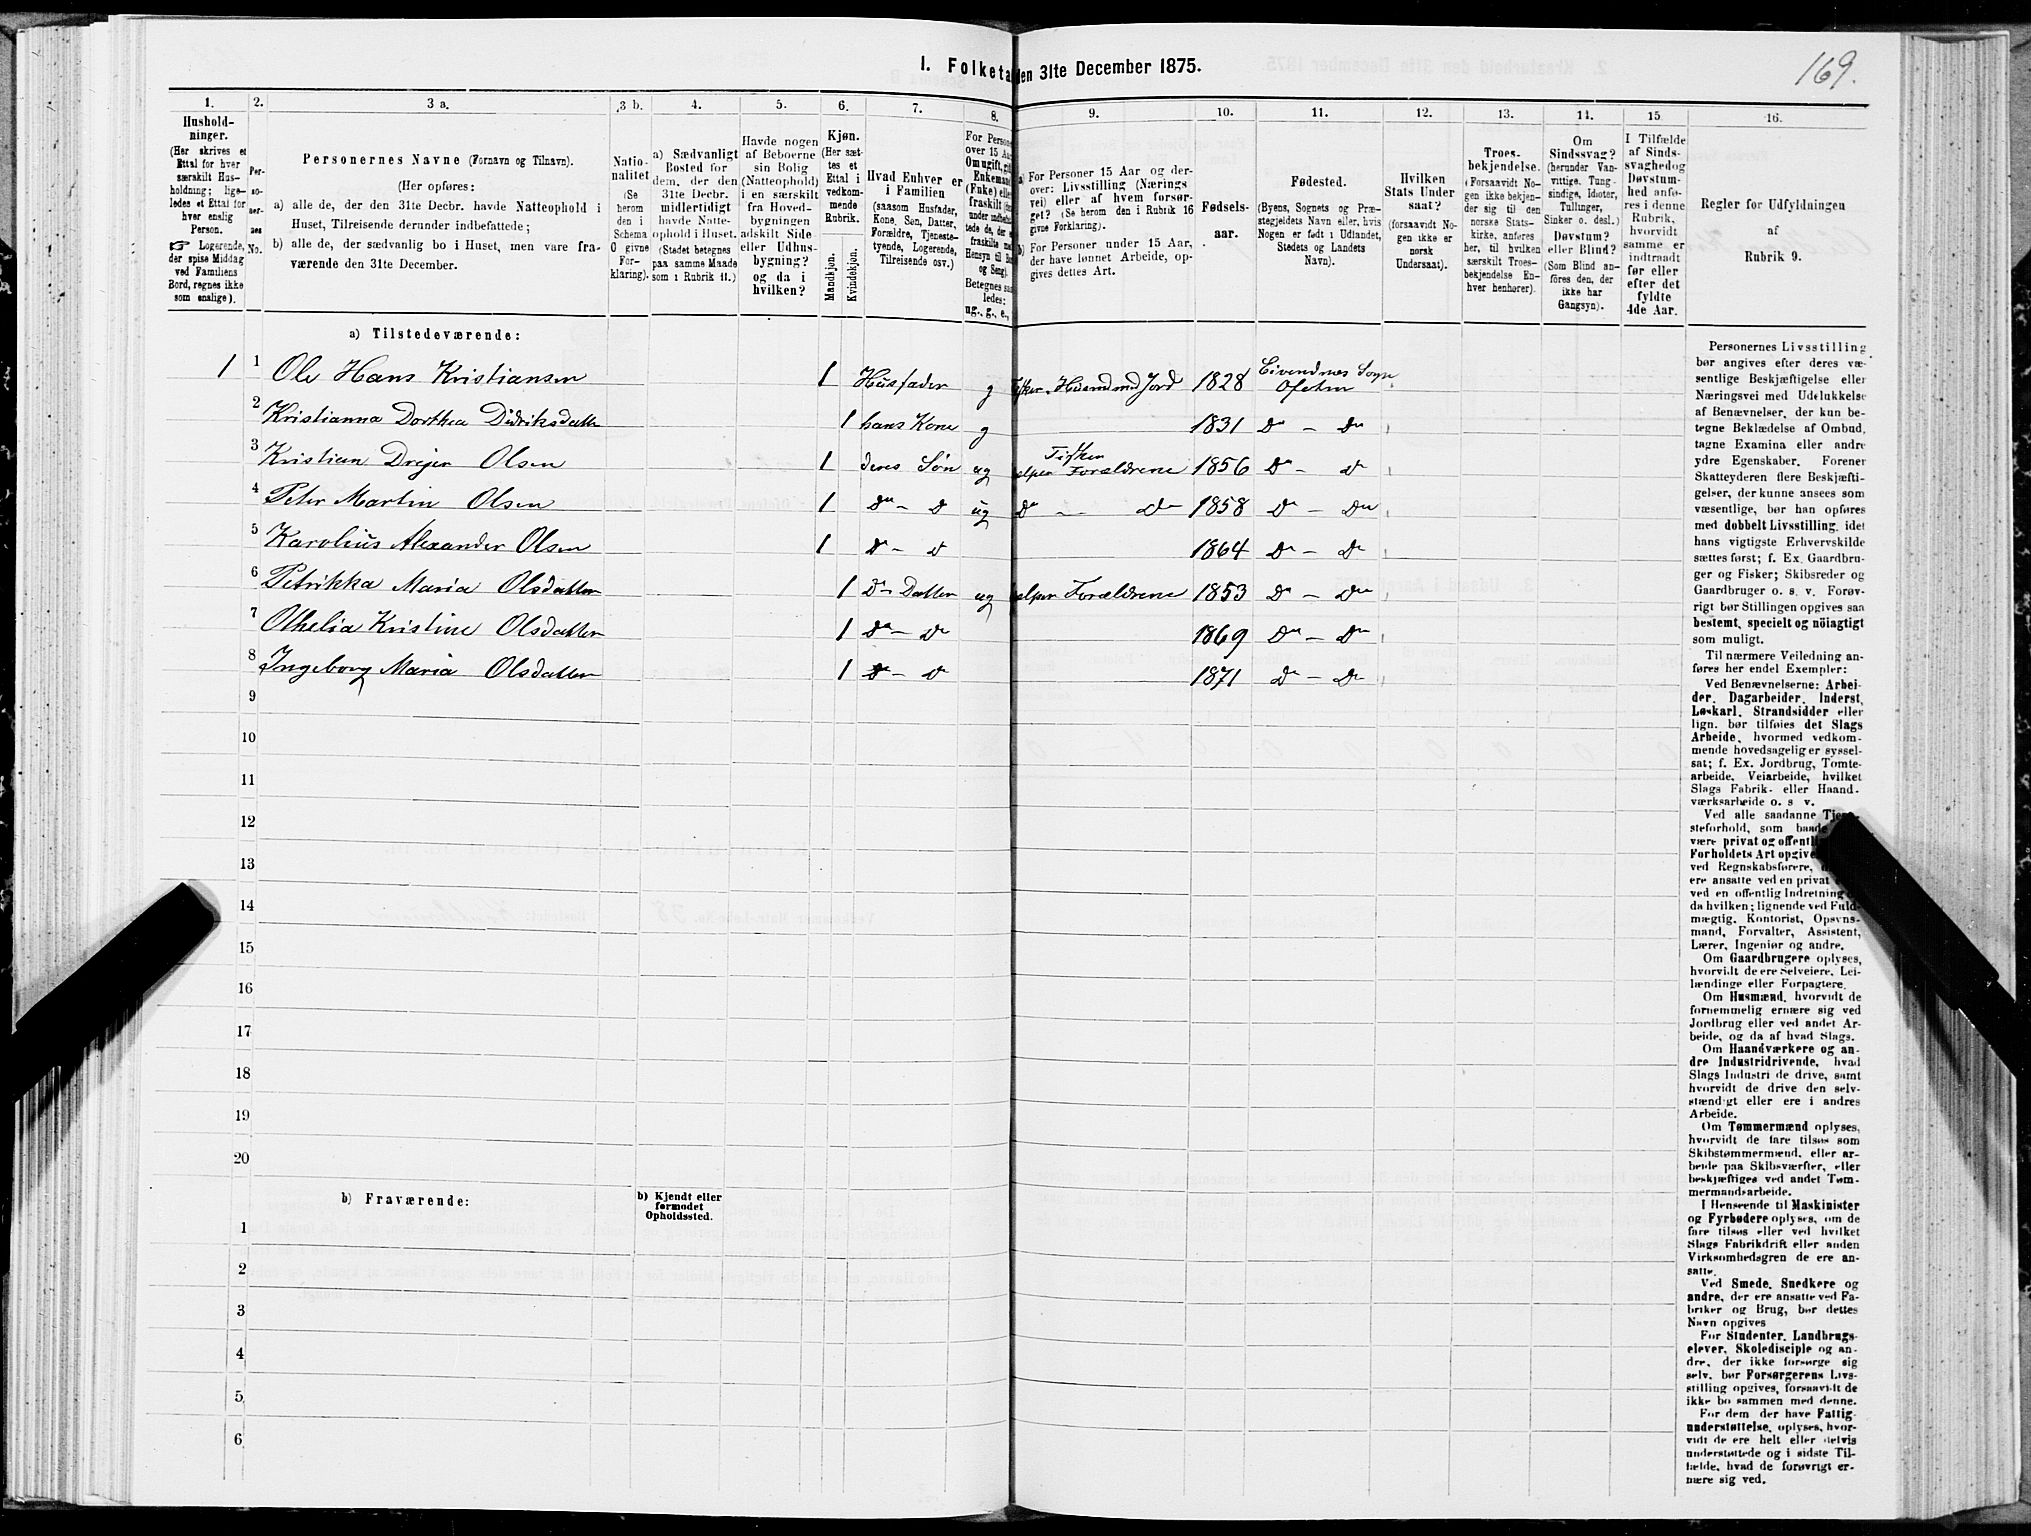 169.
I. Folketa den 31te December 1875.
1. 2. 3 a. 3 b. 4. 5. 6. 7. 8. 9. 10. 11. 12. 13. 14. 15. 16.
Hushold-
ninger.
(Her skrives et
Ettal for hver
særskilt Hus-
holdning; lige-
ledes et Ettal for
hver enslig
Person.
☞ Logerende,
der spise Middag
ved Familiens
Bord, regnes ikke
som enslige).
Per-
so-
ner-
nes
No.
Personernes Navne (Fornavn og Tilnavn).
(Her opføres:
a) alle de, der den 31te Decbr. havde Natteophold i
Huset, Tilreisende derunder indbefattede;
b) alle de, der sædvanlig bo i Huset, men vare fra-
værende den 31te December.
Natio-
nalitet
(Se
herom
den i
Schema
O givne
For-
klaring).
a) Sædvanligt
Bosted for
dem, der den
31te Decbr.
midlertidigt
havde Natte-
ophold i Huset.
(Stedet betegnes
paa samme Maade
som i Rubrik 11.)
Havde nogen
af Beboerne
sin Bolig
(Natteophold)
i en særskilt
fra Hoved-
bygningen
adskilt Side
eller Udhus-
bygning?
og da i
hvilken?
Kjøn.
(Her sæt-
tes et
Ettal i
vedkom-
mende
Rubrik.
Mandkjøn.
Kvindekjøn.
Hvad Enhver er
i Familien
(saasom Husfader,
Kone, Søn, Datter,
Forældre, Tjeneste-
tyende, Logerende,
Tilreisende osv.)
For Person
over 15 Aar
Om ugift, gift
Enkemand
(Enke) eller
fraskilt
under indbefat-
tede de, der
fraskilte m
Hensyn til Bord
og Seng).
Betegnes saa
ledes:
ug., g., e.,
a) For Personer 15 Aar og der-
over: Livsstilling (Nærings
vei) eller af hvem forsør-
get? (Se herom den i Rubrik 16
givne Forklaring).
b) For Personer under 15 Aar,
der have lønnet Arbeide, op-
gives dettes Art.
Fødsels-
aar.
Fødested.
(Byens, Sognets og Præ-
stegjeldets Navn eller, hvis
Nogen er født i Udlandet,
Stedets og Landets
Navn).
Hvilken
Stats Under
saat?
(forsaavidt No-
gen ikke er
norsk
Undersaat).
Troes-
bekjendelse.
(Forsaavidt No-
gen ikke bekjen-
der sig til den
norske Stats-
kirke, anføres
her, til hvilken
særskilt Troes-
bekjendelse En-
hver henhører).
Om
Sindssvag?
(herunder Van-
vittige, Tung-
sindige, Idioter,
Tullinger,
Sinker o. desl.)
Døvstum?
eller Blind?
(Som Blind an-
føres den, der
ikke har
Gangsyn).
I Tilfælde
af Sinds-
svaghed og
Døvstum-
hed anfø-
res i denne
Rubrik,
hvorvidt
samme er
indtraadt
før eller
efter det
fyldte
4de Aar.
Regler for Udfyldningen
af
Rubrik 9.
a) Tilstedeværende:
1 1 Ole Hans Kristiansen 1 Husfader g Fisker. Husmand med Jord 1828 Eivendnes Sogn Ofoten
2 Kristianna Dorthea Didriksdatter 1 hans Kone g 1831 Do - Do
3 Kristian Drejer Olsen 1 deres Søn ug Fisker hjelper Forældrene 1856 Do - do
4 Peter Martin Olsen 1 Do - do ug Do - Do 1858 Do - Do
5 Karolius Alexander Olsen 1 do - do 1864 Do - Do
6 Petrikka Maria Olsdatter 1 Do Datter ug hjelper Forældrene 1853 Do - Do
7 Othelia Kristine Olsdatter 1 Do - Do 1869 Do - Do
8 Ingeborg Maria Olsdatter 1 do - do 1871 Do - Do
9
10
11
12
13
14
15
16
17
18
19
20
b) Fraværende:
b) Kjendt eller
formodet
Opholdssted.
1
2
3
4
5
6
Personernes Livsstilling
bør angives efter deres væ-
sentlige Beskjæftigelse eller
Næringsvei med Udelukkelse
af Benævnelser, der kun be-
tegne Beklædelse af Ombud,
tagne Examina eller andre
ydre Egenskaber. Forener
Skatteyderen flere Beskjæfti-
gelser, der kunne ansees som
væsentlige, bør han opføres
med dobbelt Livsstilling, idet
hans vigtigste Erhvervskilde
sættes først; f. Ex. Gaardbru-
ger og Fisker; Skibsreder og
Gaardbruger o. s. v. Forøv-
rigt bør Stillingen opgives saa
bestemt, specielt og nöiagtigt
som muligt.
Til nærmere Veiledning an-
føres her endel Exempler:
Ved Benævnelserne: Arbei-
der, Dagarbeider, Inderst,
Løskarl, Strandsidder eller
lign. bør tilføies det Slags
Arbeide, hvormed vedkom-
mende hovedsagelig er syssel-
sat; f. Ex. Jordbrug, Tomte-
arbeide, Veiarbeide, hvilket
Slags Fabrik- eller Haand-
værksarbeide o. s v.
Ved alle saadanne Tjene-
steforhold, som baade
være privat og offentl
Forholdets Art opgive
ved Regnskabsførere,
ere ansatte ved en privat
ved en offentlig Indretning
da hvilken; lignende ved Fuld-
mægtig, Kontorist, Opsyns-
mand, Forvalter, Assistent,
Lærer, Ingeniør og andre.
Om Gaardbrugere oplyses,
hvorvidt de ere Selveiere, Lei-
lændinge eller Forpagtere.
Om Husmænd, hvorvidt de
fornemmelig ernære sig ved
Jordbrug eller ved andet Ar-
beide, og da af hvad Slags.
Om Haandværkere og an-
dre Industridrivende, hvad
Slags Industri de drive, samt
hvorvidt de drive den selv-
stændigt eller ere i andres
Arbeide.
Om Tømmermænd oplyses,
hvorvidt de fare tilsøs som
Skibstømmermænd, eller ar-
beide paa Skibsværfter, eller
beskjæftiges ved andet Tøm-
mermandsarbeide.
I Henseende til Maskinister
og Fyrbødere oplyses, om de
fare tilsøs eller ved hvilket
Slags Fabrikdrift eller anden
Virksomhedsgren de ere an-
satte.
Ved Smede, Snedkere og
andre, der ere ansatte ved Fa-
briker og Brug, bør dettes
Navn opgives
For Studenter, Landbrugs-
elever, Skoledisciple og an-
dre, der ikke forsørge sig
selv, bør Forsørgerens Livs-
stilling opgives, forsaavidt de
ikke bo sammen med denne.
For dem der have Fattig-
understøttelse, oplyses, hvor-
vidt de ere helt eller delvis
understøttede og i sidste Til-
fælde, hvad de forøvrigt er-
nære sig ved.